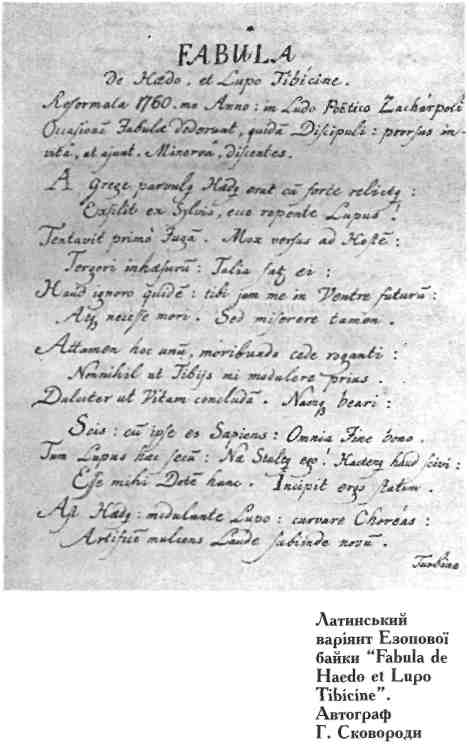 FABULA
De Hædo, et Lupo Tibicine.
Reformata 1760. mo Anno: in Ludo Poëtico
Occasionē Fabulæ dederunt, quidā Discipuli: prorsus in-
vitâ, ut ajunt. Minervâ, discentes.
A Grege parvulꝰ Hædꝰ erat cū forte relictꝰ:
Exsilit ex Sylvis, ecce repente Lupus!
Tentavit primò Fugā. Mox versus ad Hostē:
Tergori inhæsurū: Talia fatꝰ ei:
Haud ignoro quidē: tibi jam me in Ventre futurū:
Atqꝫ necesse mori. Sed miserere tamen.
Attamen hoc unū, moribundo cede roganti:
Nonnihil ut Tibijs mi modulere prius.
Dulciter ut Vitam concludā. Namqꝫ beari:
Scis: cū ipse es Sapiens: Omnia Fine bono.
Tum Lupus hæc secū: Næ Stultꝰ ego! Hactenꝰ haud scivi:
Esse mihi Dotē hanc. Incipit ergo statim.
Ast Hædꝰ: modulante Lupo: curvare Choréas:
Artificē mulcens Laude subinde novū.
Turbine
Латинський
варіянт Езопової
байки “Fabula de
Haedo et Lupo
Tibicine”.
Автограф
Г. Сковороди